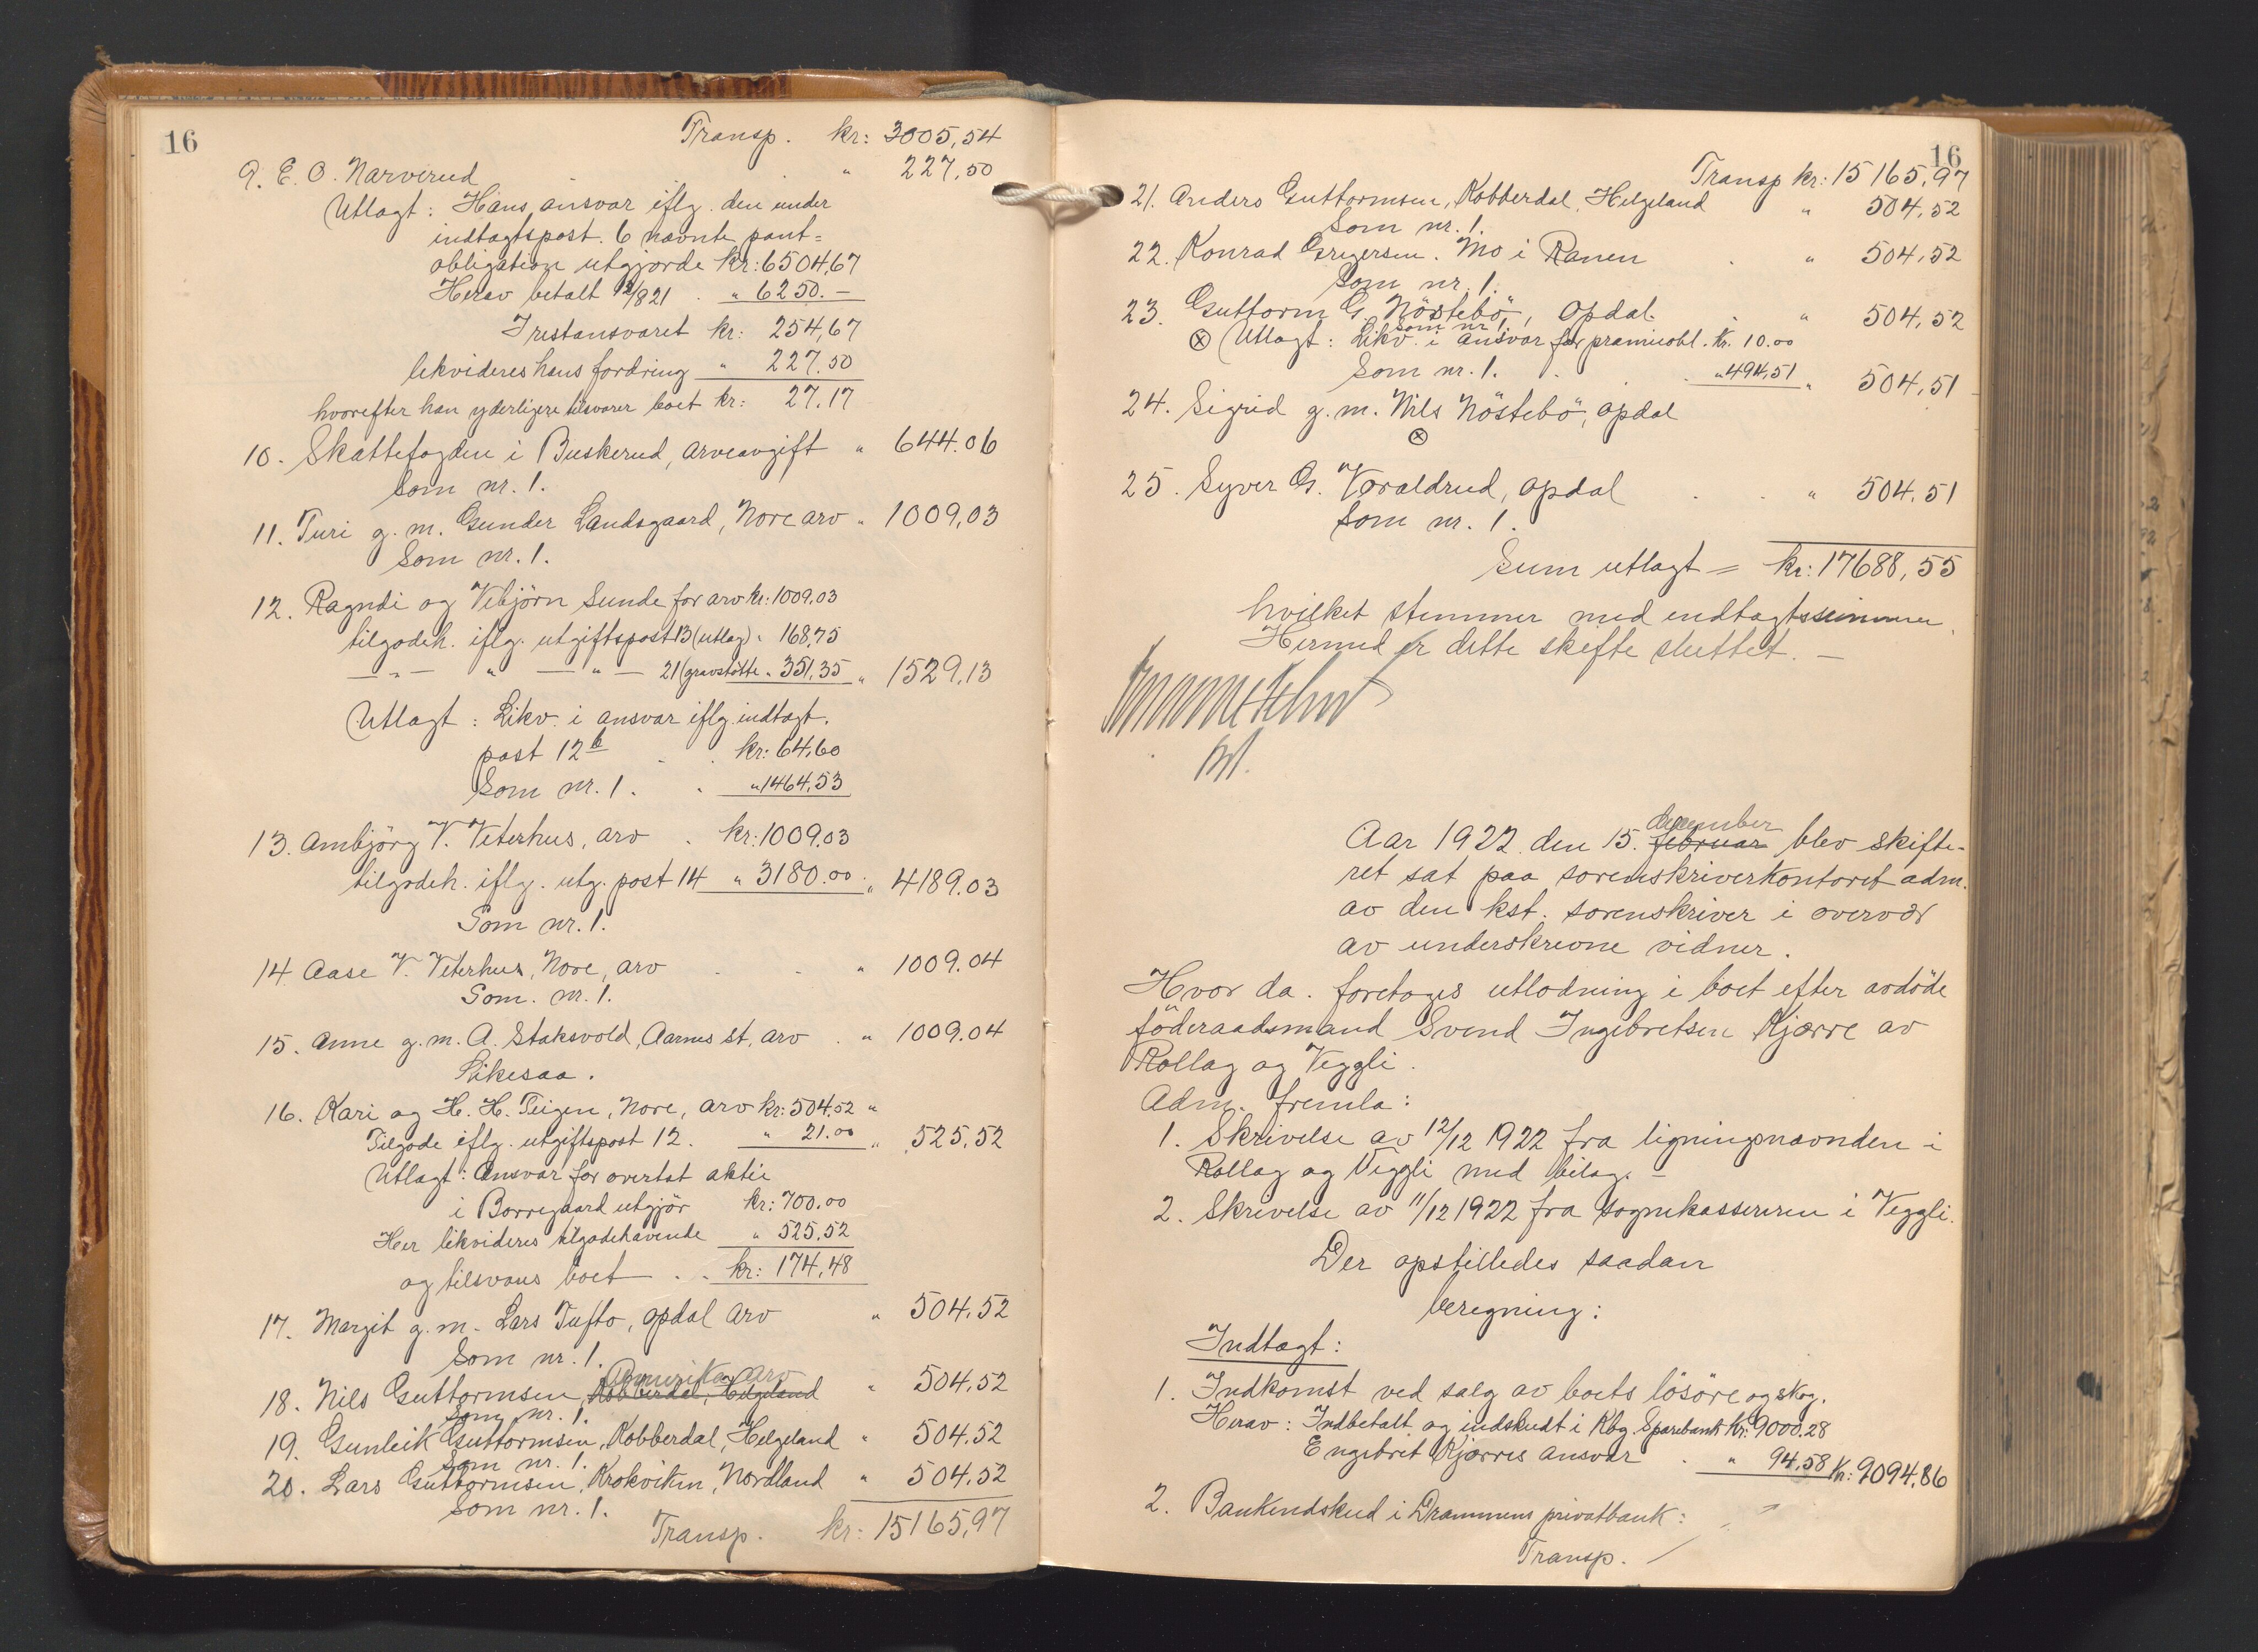 16
Transp. kr: 3005,54
9. E. O. Narverud . . " 227,50
Utlagt: Hans ansvar iflg. den under
indtagtspost. 6 nævnte pant=
obligation utgjorde kr: 6504,67
Herav betalt 12/8 21 . " 6250.—
I restansvaret kr: 254,67
likvideres hans fordring " 227.50
hvorefter han yderligere tilsvarer boet kr: 27.17
10. Skattefogden i Buskerud, arveavgift " 644.06
Som nr. 1.
11. Turi g. m. Gunder Landsgaard, Nore arv " 1009,03
Som nr. 1.
12. Ragndi og Vebjörn Sunde for arv kr: 1009.03
tilgodeh. iflg. utgiftspost 13 (utlag) " 168,75
— " — " — " — 21 (gravstötte " 351,35 " 1529,13
Utlagt: Likv. i ansvar iflg. indtagt.
post 12 b . . kr: 64,60
Som nr. 1. . " 1464,53
13. Ambjörg V. Veterhus, arv . kr: 1009,03
tilgodeh. iflg. utg. post 14 " 3180.00 " 4189.03
Som nr. 1.
14 Aase V. Veterhus, Nore, arv . . " 1009.04
Som. nr. 1.
15. Anne g. m. A. Staksvold, Aarnes st, arv . " 1009.04
Likesaa.
16. Kari og H. H. Teigen, Nore, arv kr: 504,52 "
Tilgode iflg. utgiftspost 12. " 21.00 " 525,52
Utlagt: Ansvar for overtat aktie
i Borregaard utgjör kr: 700.00
Her likvideres tilgodehavende " 525,52
og tilsvares boet . . kr: 174,48
17. Margit g. m. Lars Tufto, Opdal arv " 504,52
Som nr. 1.
Amerika arv
18. Nils Guttormsen, Kobberdal, Helgeland " 504,52
Som nr. 1.
19. Gunleik Guttormsen, Kobberdal, Helgeland " 504,52
Som nr. 1.
20. Lars Guttormsen, Krokviken, Nordland " 504,52
Som nr. 1.
Transp. kr: 15165,97
16
Transp kr: 15165,97
21. Anders Guttormsen, Kobberdal, Helgeland " 504,52
Som nr. 1.
22. Konrad Gregersen. Mo i Ranen . " 504,52
Som nr. 1.
23. Guttorm G. Nöstebö, Opdal. . " 504,52
Som nr 1.
⊗ Utlagt: Likv. i ansvar for præmieobl. Kr. 10.00
Som nr. 1. . . " 494,51 " 504,51
24. Sigrid g. m. Nils Nöstebö, Opdal
⊗
25. Syver G. Voraldrud, Opdal . . " 504,51
Som nr. 1.
Sum utlagt = kr: 17688,55
hvilket stemmer med indtagtssummen.
Hermed er dette skifte sluttet. —
december
Aar 1922 den 15. februar blev skifte-
ret sat paa sorenskriverkontoret adm.
av den kst. sorenskriver i overvær
av underskrevne vidner.
Hvor da. foretages utlodning i boet efter avdöde
föderaadsmand Svend Ingebretsen Kjærre av
Rollag og Veggli.
Adm. fremla:
1. Skrivelse av 12/12 1922 fra ligningsnævnden i
Rollag og Veggli med bilag. —
2. Skrivelse av 11/12 1922 fra sognekassereren i Veggli.
Der opstilledes saadan
beregning:
Indtægt:
1. Indkomst ved salg av boets lösöre og skog.
Herav: Indbetalt og indskudt i Kbg. Sparebank Kr: 9000.28
Engebret Kjærres ansvar . " 94,58 Kr: 9094,86
2. Bankindskud i Drammens privatbank:
Transp.